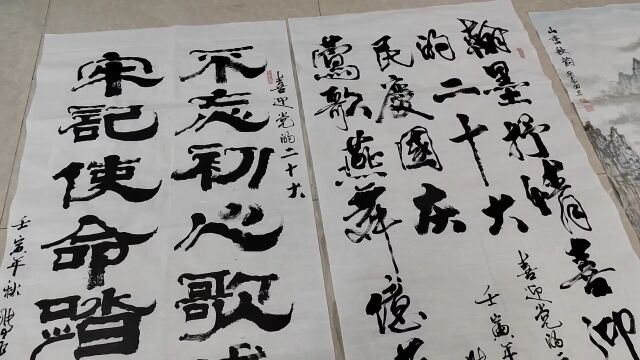 翰墨抒情喜迎
的二十大
民慶國庆
鶯歌燕舞億
喜迎党的
壬寅年
喜迎党的二十大
不忘初心歌
牢記使命踏
壬寅年秋